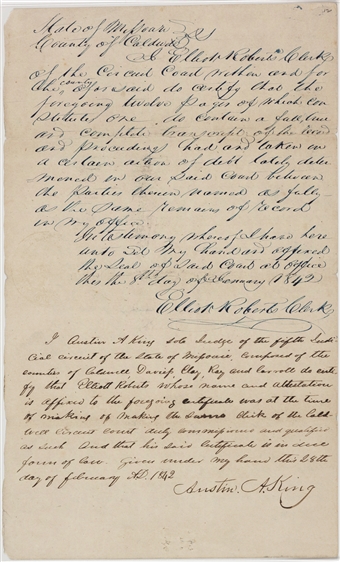 State of Missouri
County of Caldwell
I Elliott Roberts Clerk
of the Circuit Court within and for
the county aforesaid do certify that the
foregoing twelve pages of which con
stitutes one do contain a full true
and complete transcript of the record
and proceedings had and taken in
a certain action of debt lately deter
mined in our said Court between
the Parties therein named as fully
as the same remains of record
in my office.
In testimony whereof I have here
unto set my hand and affixed
the Seal of said Court at office
this the 8th day of January 1842
Elliott Roberts Clerk
I Austin A King sole Judge of the fifth Judi
cial circuit of the State of Missouri, composed of the
counties of Caldwell Daviess Clay Ray and Carroll do cer
tify that Elliott Roberts whose name and attestation
is affixed to the foregoing certificate was at the time
of making the same Clerk of the Cald
well Circuit court duly commissioned and qualified
as such And that his said Certificate is in due
form of law. Given under my hand this 28th
day of february AD. 1842
Austin. A. King